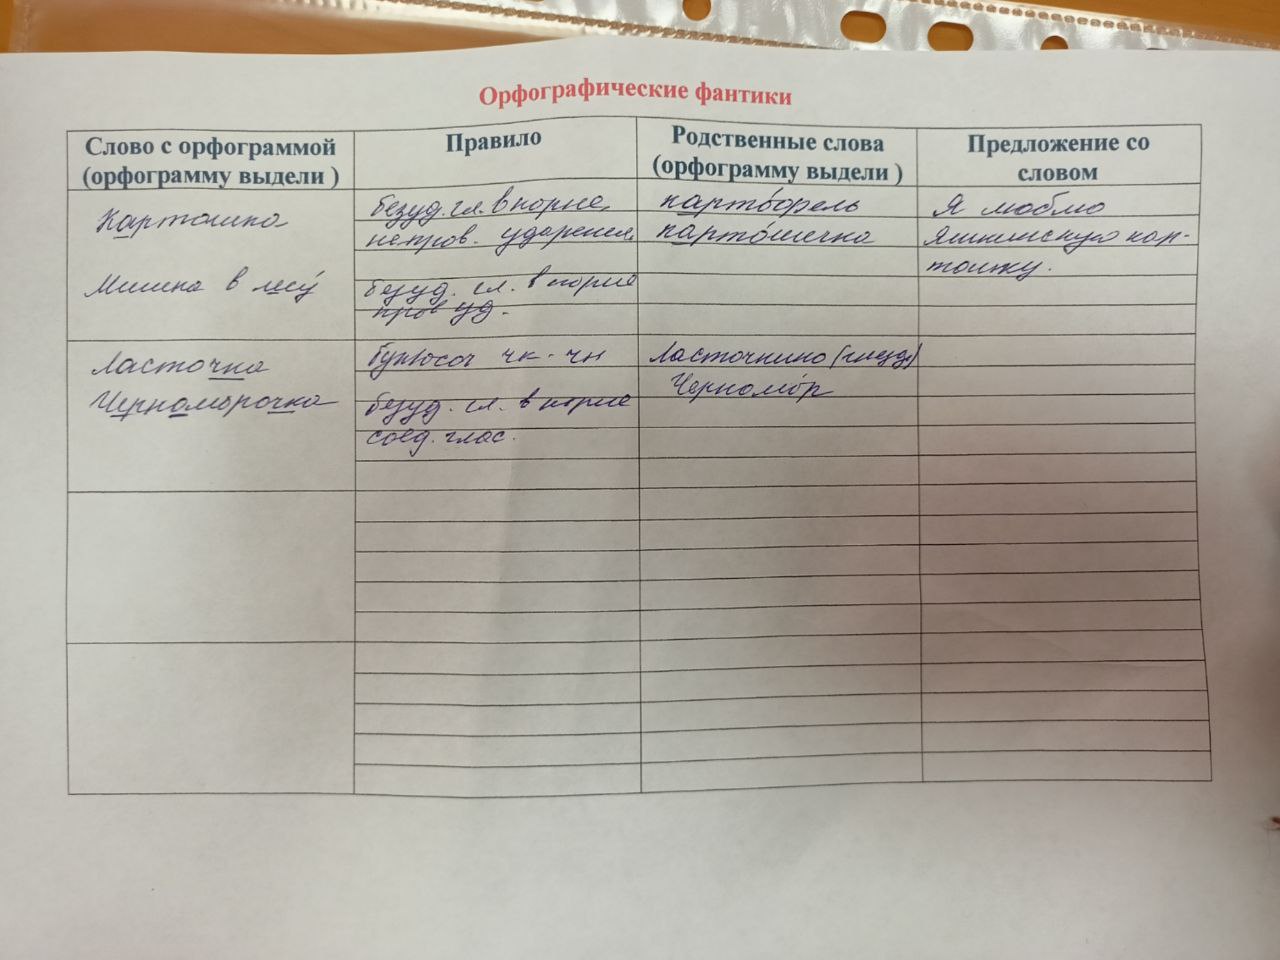 Орфографические фантики
Слово с орфограммой
(орфограмму выдели )
Правило
Родственные слова
(орфограмму выдели )
Предложение со
словом
Картошка
безуд. гл. в корне,
непров. ударением
картофель
картошечка
Я люблю
Яшкинскую кар-
тошку.
Мишка в лесу
безуд. гл. в корне
пров уд.
Ласточка
букв. соч чк - чн
Ласточкино (гнездо)
Черноморочка
безуд. гл. в корне
соед. глас.
Черномор